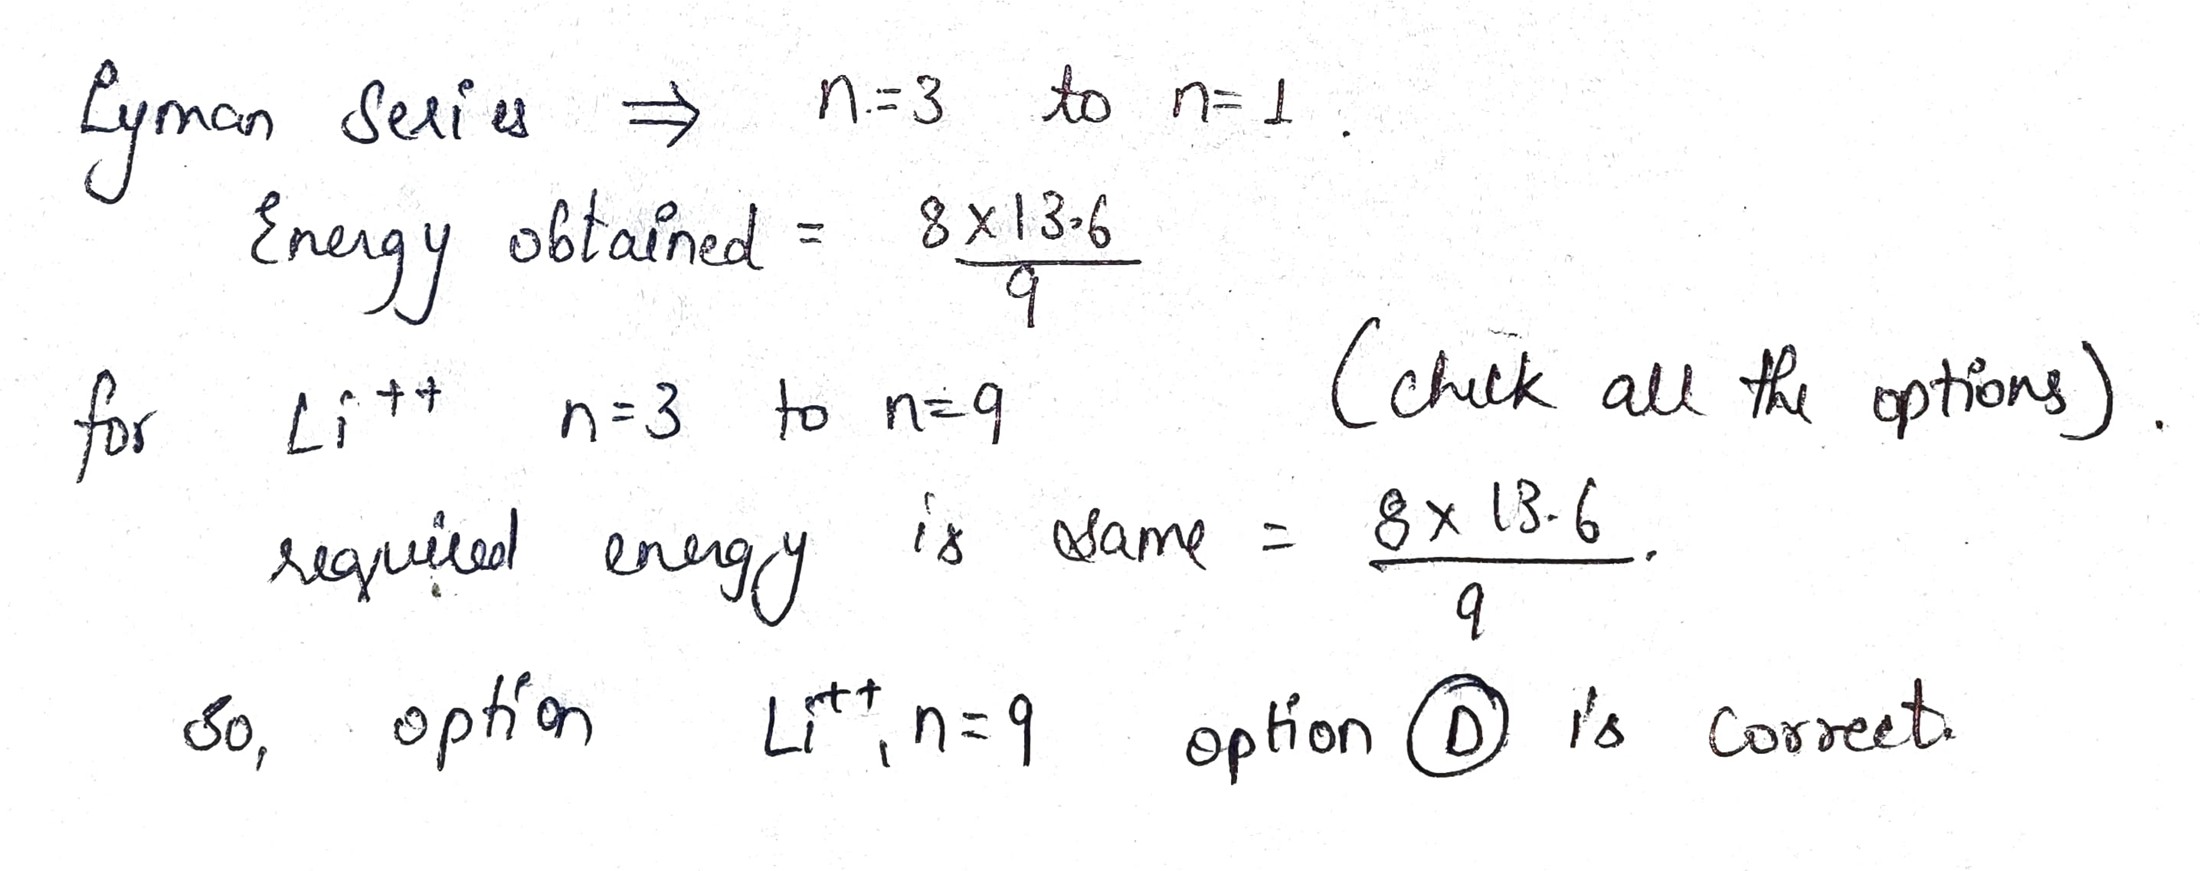 Lyman Series ⇒ n=3 to n=1.
Energy obtained = 8×13.6/9
for Li⁺⁺ n=3 to n=9 (check all the options).
required energy is same = 8×13.6/9.
so, option Li⁺⁺, n=9 option Ⓓ is correct.